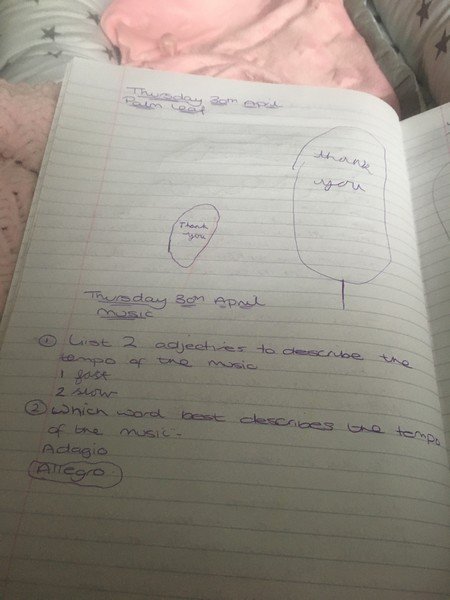 Thursday 30th April
Palm Leaf
thank
you
Thank
you
Thursday 30th April
Music
① List 2 adjectives to describe the
tempo of the music
1 fast
2 slow
② Which word best describes the tempo
of the music-
Adagio
Allegro